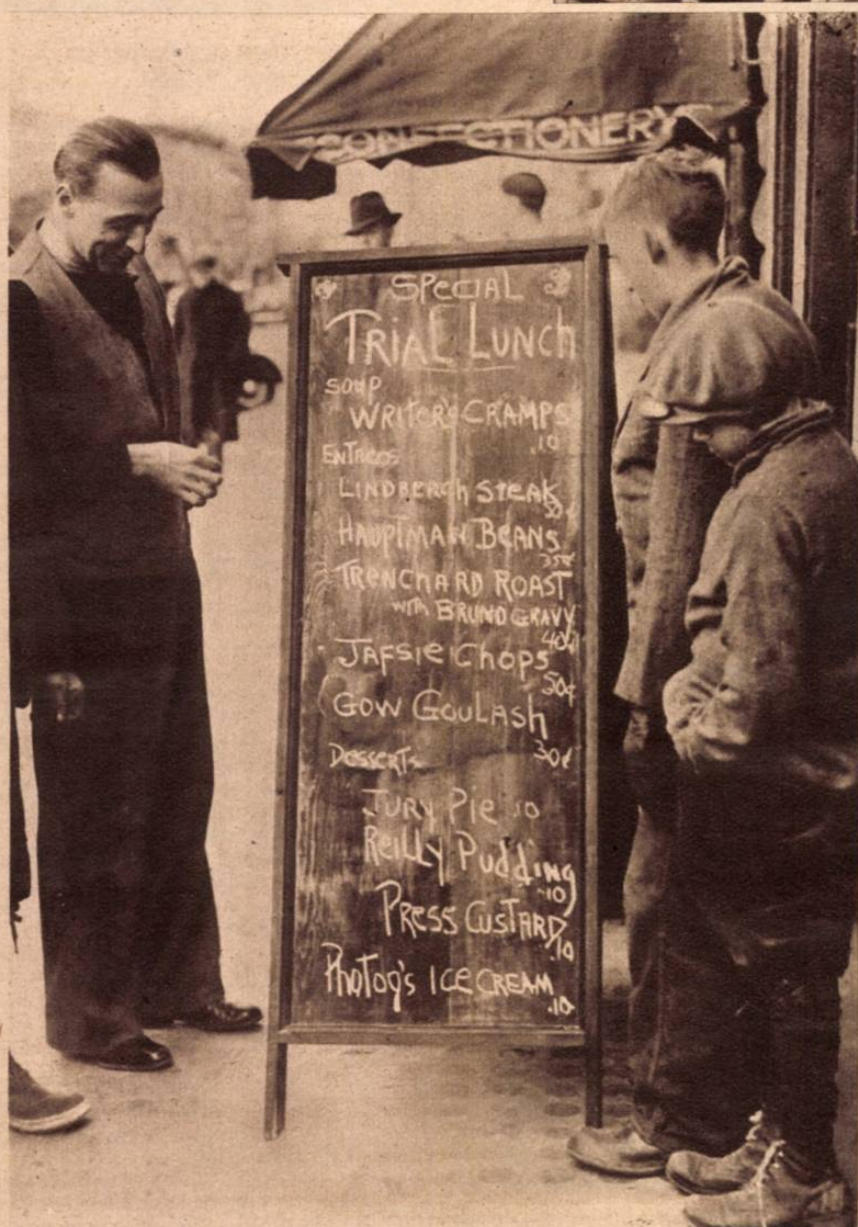 CONFECTIONERY
SPECIAL
TRIAL LUNCH
SOUP
WRITER'S CRAMPS
.10
ENTREES
LINDBERGH STEAK
HAUPTMAN BEANS
35¢
TRENCHARD ROAST
WITH BRUNO GRAVY
40¢
JAFSIE CHOPS
50¢
GOW GOULASH
30¢
DESSERTS
JURY PIE 10
REILLY PUDDING
.10
PRESS CUSTARD
.10
PHOTOG'S ICE CREAM
.10